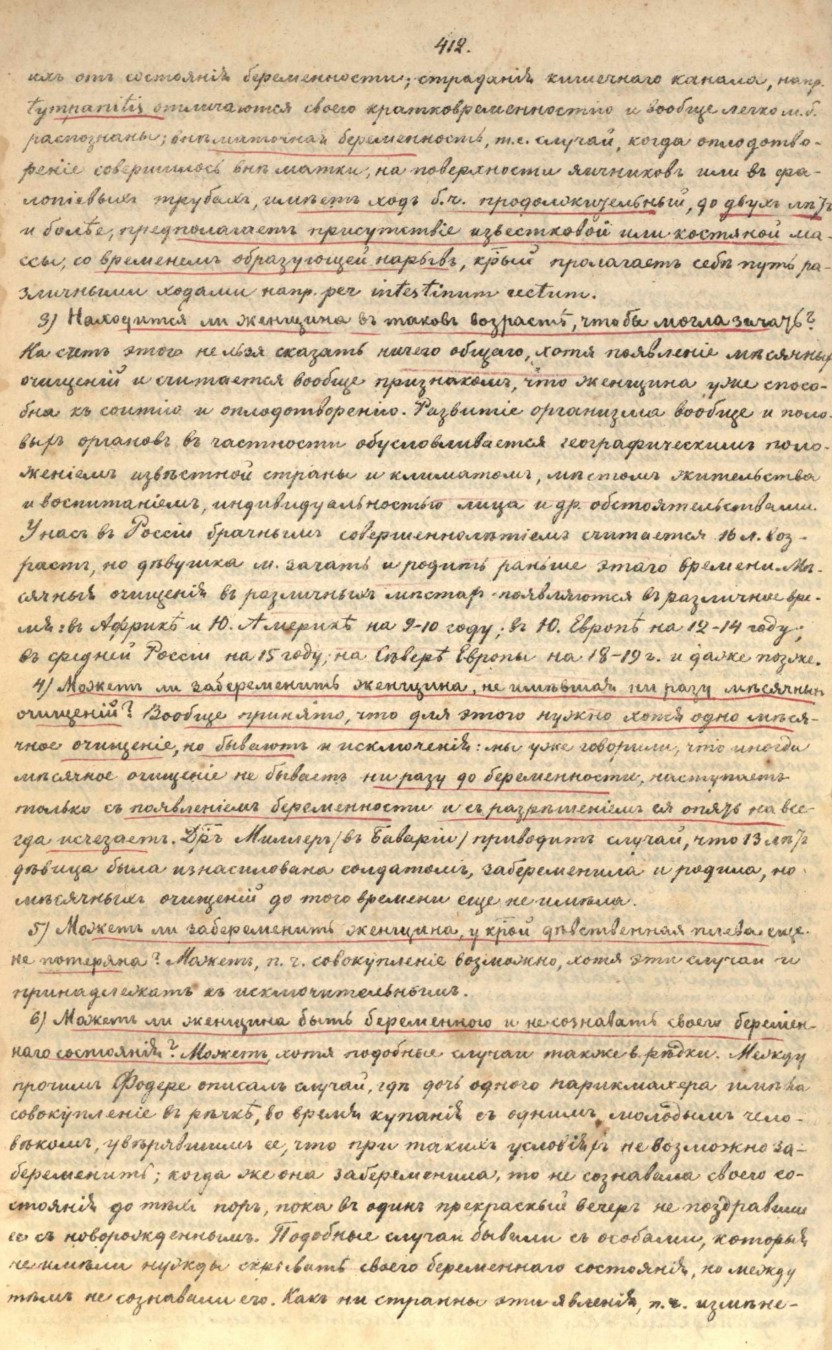 412.
ихъ отъ состоянія беременности; страданія кишечнаго канала, напр.
tympanitis отличаются своею кратковременностію и вообще легко м. б.
распознаны; внѣматочная беременность, т.е. случай, когда оплодотво-
реніе совершилось внѣ матки, на поверхности яичниковъ или въ фа-
лопіевыхъ трубахъ, имѣетъ ходъ б.ч. продолжительный, до двухъ лѣтъ
и болѣе, предполагаетъ присутствіе известковой или костяной ма-
ссы, со временемъ образующей нарывъ, крый пролагаетъ себѣ путь ра-
зличными ходами напр. per intestinum rectum.
3) Находится ли женщина въ таковъ возрастѣ, что бы могла зачать?
На счетъ этого нельзя сказать ничего общаго, хотя появленіе мѣсячныхъ
очищеній и считается вообще признакомъ, что женщина уже спосо-
бна къ соитію и оплодотворенію. Развитіе организма вообще и поло-
выхъ органовъ въ частности обусловливается географическимъ поло-
женіемъ извѣстной страны и климатомъ, мѣстомъ жительства
и воспитаніемъ, индивидуальностью лица и др. обстоятельствами.
У насъ въ Россіи брачнымъ совершеннолѣтіемъ считается 16 л. воз-
растъ, но дѣвушка м. зачать и родить раньше этаго времени. Мѣ-
сячныя очищенія въ различныхъ мѣстар появляются въ различное вре-
мя: въ Африкѣ и Ю. Америкѣ на 9-10 году; въ Ю. Европѣ на 12-14 году;
въ средней Россіи на 15 году, на Сѣверѣ Европы на 18-19 г. и даже позже.
4) Можетъ ли забеременить женщина, не имѣвшая ни разу мѣсячныхъ
очищеній? Вообще принято, что для этого нужно хотя одно мѣся-
чное очищеніе, но бываютъ и исключенія: мы уже говорили, что иногда
мѣсячное очищеніе не бываетъ ни разу до беременности, наступаетъ
только съ появленіемъ беременности и съ разрѣшеніемъ ея опять на все-
гда исчезаетъ. Дръ Миллеръ /въ Баваріи/ приводитъ случай, что 13 лѣтъ
дѣвица была изнасилована солдатомъ, забеременила и родила, но
мѣсячныхъ очищеній до того времени еще не имѣла.
5) Можетъ ли забеременить женщина, у крой дѣвственная плева еще
не потеряна? Можетъ, п. ч. совокупленіе возможно, хотя эти случаи и
принадлежатъ къ исключительнымъ.
6) Можетъ ли женщина быть беременною и не сознавать своего беремен-
наго состоянія? Можетъ, хотя подобные случаи также в. рѣдки. Между
прочимъ Фодере описалъ случай, гдѣ дочь одного парикмахера имѣла
совокупленіе въ рѣчкѣ, во время купанія съ однимъ молодымъ чело-
вѣкомъ, увѣрявшимъ ее, что при такихъ условіяхъ не возможно за-
беременить; когда же она забеременила, то не сознавала своего со-
стоянія до тѣхъ поръ, пока въ одинъ прекрасный вечеръ не поздравили
ее съ новорожденнымъ. Подобные случаи бывали съ особами, которыя
не имѣли нужды скрывать своего беременнаго состоянія, но между
тѣмъ не сознавали его. Какъ ни странны эти явленія, п. ч. измѣне-